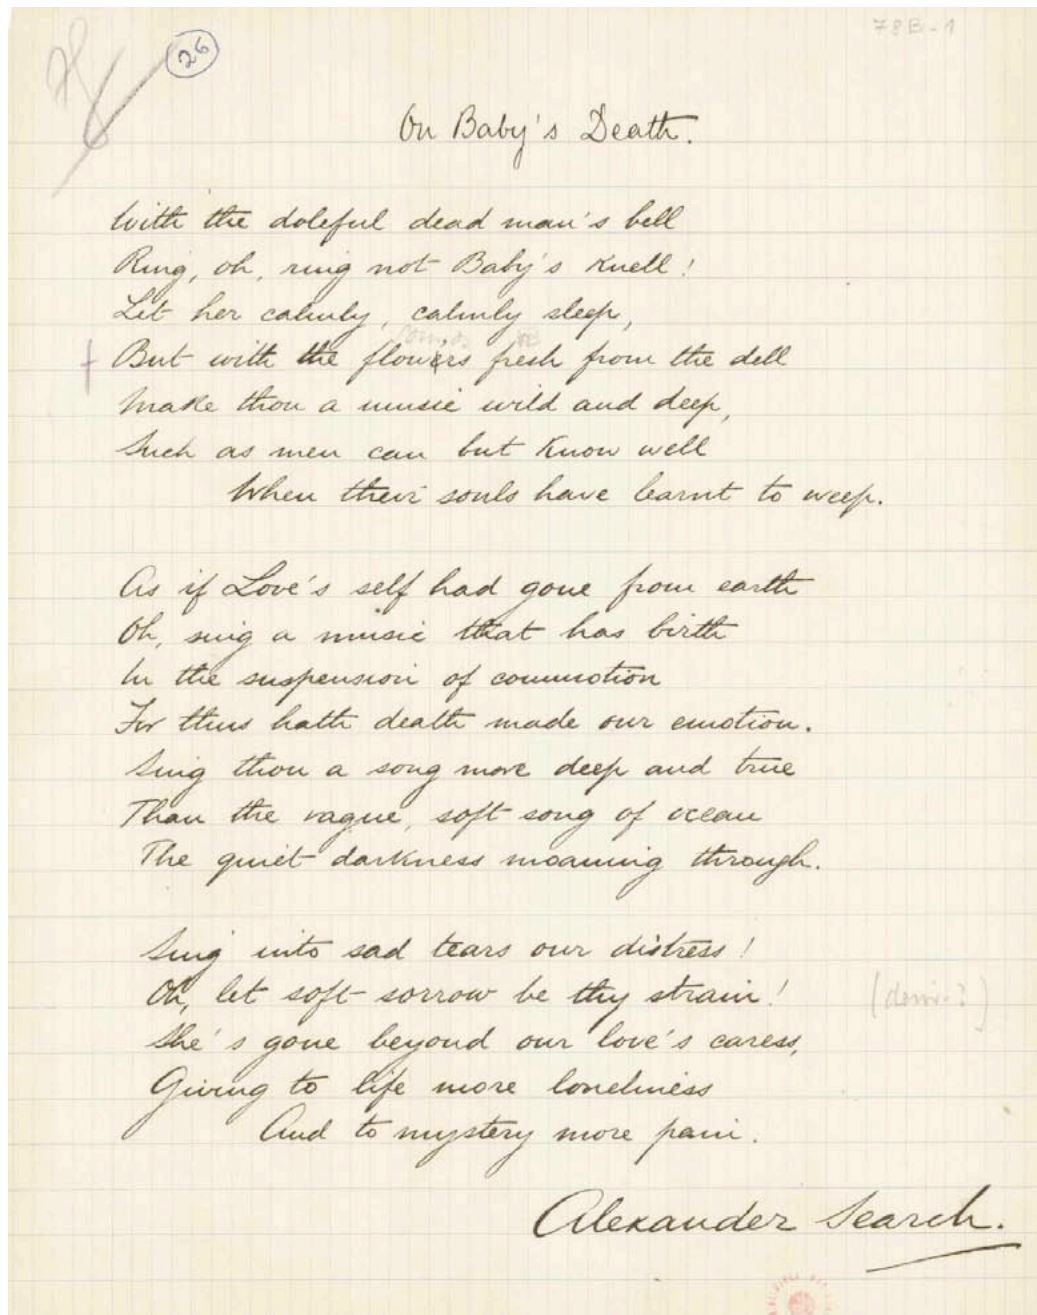 78B-1
26
On Baby's Death.
With the doleful dead man's bell
Ring, oh, ring not Baby's knell!
Let her calmly, calmly sleep,
But with the flowers fresh from the dell
Make thou a music wild and deep,
Such as men can but know well
When their souls have learnt to weep.
As if Love's self had gone from earth
Oh, sing a music that has birth
In the suspension of commotion
For thus hath death made our emotion.
Sing thou a song more deep and true
Than the vague, soft song of ocean
The quiet darkness moaning through.
Sing into sad tears our distress!
Oh, let soft sorrow be thy strain!
She's gone beyond our love's caress,
Giving to life more loneliness
And to mystery more pain.
Alexander Search.